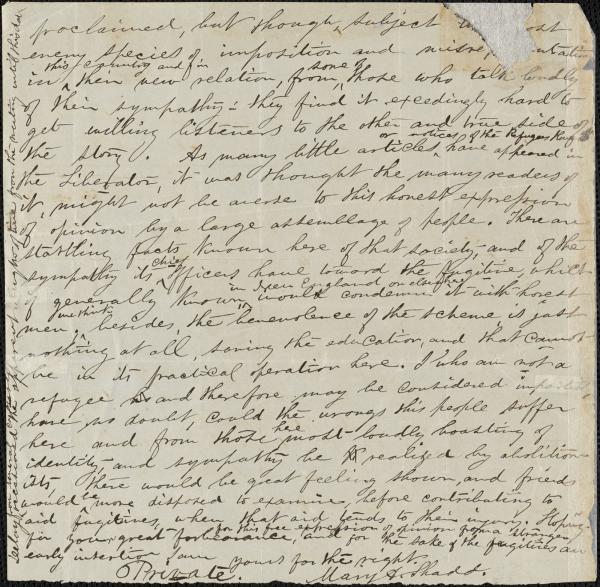 proclaimed, but though subject
enemy species of imposition and misre
this country and in some of
in their new relation, from those who talk loudly
of their sympathy: they find it exceedingly hard to
get willing listeners to the other and true side of
or notices of the Refugee
the story. As many little articles have appeared in
the Liberator, it was thought the many readers of
it, might not be averse to this honest expression
of opinion by a large assemblage of people. There are
startling facts known here of that society, and of the
chief
sympathy its officers have toward the fugitive, which
in New England or elsewhere
if generally known would condemn it with honest
men, besides, the benevolence of the scheme is just
nothing at all, saving the education, and that cannot
be in its practical operation here. I who am not a
refugee and therefore may be considered
have, no doubt, could the wrongs this people suffer
here
here and from those most loudly boasting of
identity, and sympathy be realized by abolition
ists, there would be great feeling shown, and friends
be
would more disposed to examine, before contributing to
aid fugitives, when that aid tends to their injury. Hoping
for this free expression of opinion from a stranger
for your great forbearance, and for the sake of the fugitives an
early insertion, I am yours for the right.
Private. Mary A. Shadd.